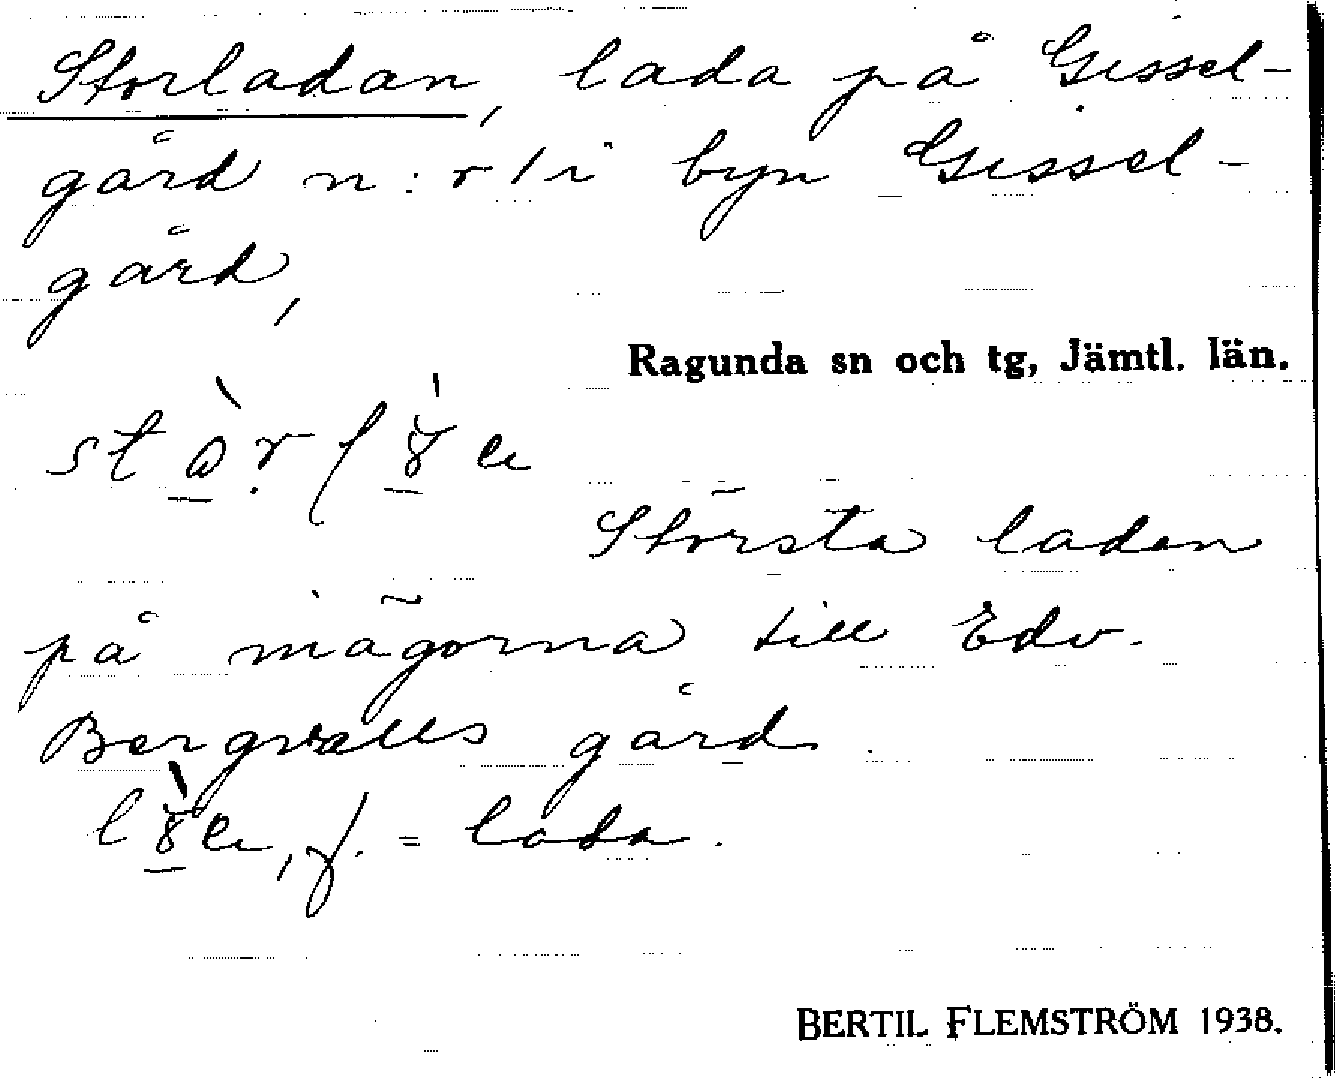 Storladan, lada på Gissel-
gård n:r 1 i byn Gissel-
gård,
Ragunda sn och tg, Jämtl. län.
Största ladan
på mägorna till Edv.
Bergvalls gård
f. = lada.
BERTIL FLEMSTRÖM 1938.